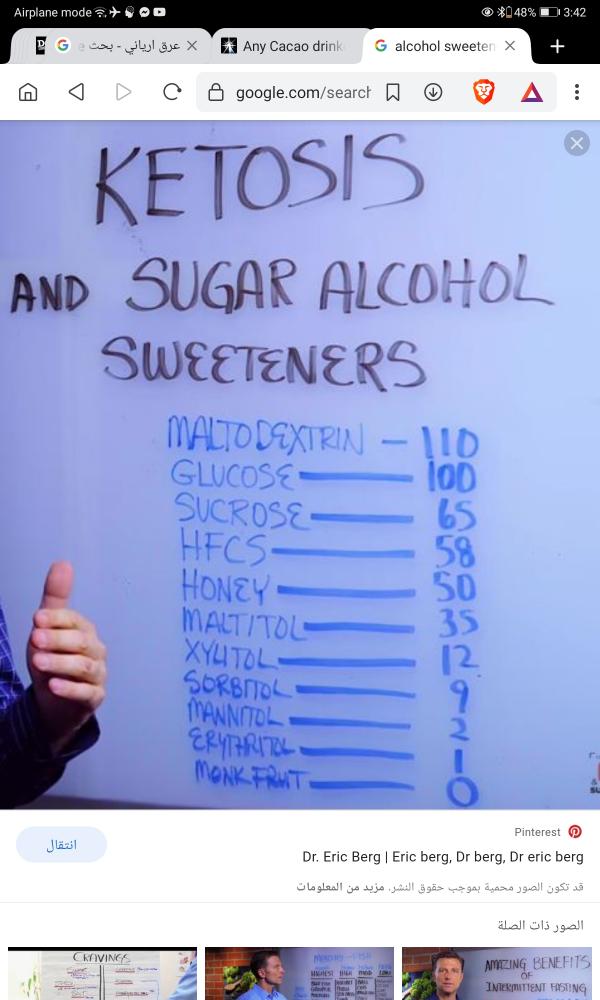 Airplane mode 48% 3:42
عرق ارياني - بحث
Any Cacao drink
alcohol sweeten
google.com/search
KETOSIS
AND SUGAR ALCOHOL
SWEETENERS
MALTODEXTRIN — 110
GLUCOSE — 100
SUCROSE — 65
HFCS — 58
HONEY — 50
MALTITOL — 35
XYLITOL — 12
SORBITOL — 9
MANNITOL — 2
ERYTHRITOL — 1
MONK FRUIT — 0
Pinterest
انتقال
Dr. Eric Berg | Eric berg, Dr berg, Dr eric berg
قد تكون الصور محمية بموجب حقوق النشر. مزيد من المعلومات
الصور ذات الصلة
CRAVINGS
AMAZING
BENEFITS
OF
INTERMITTENT FASTING